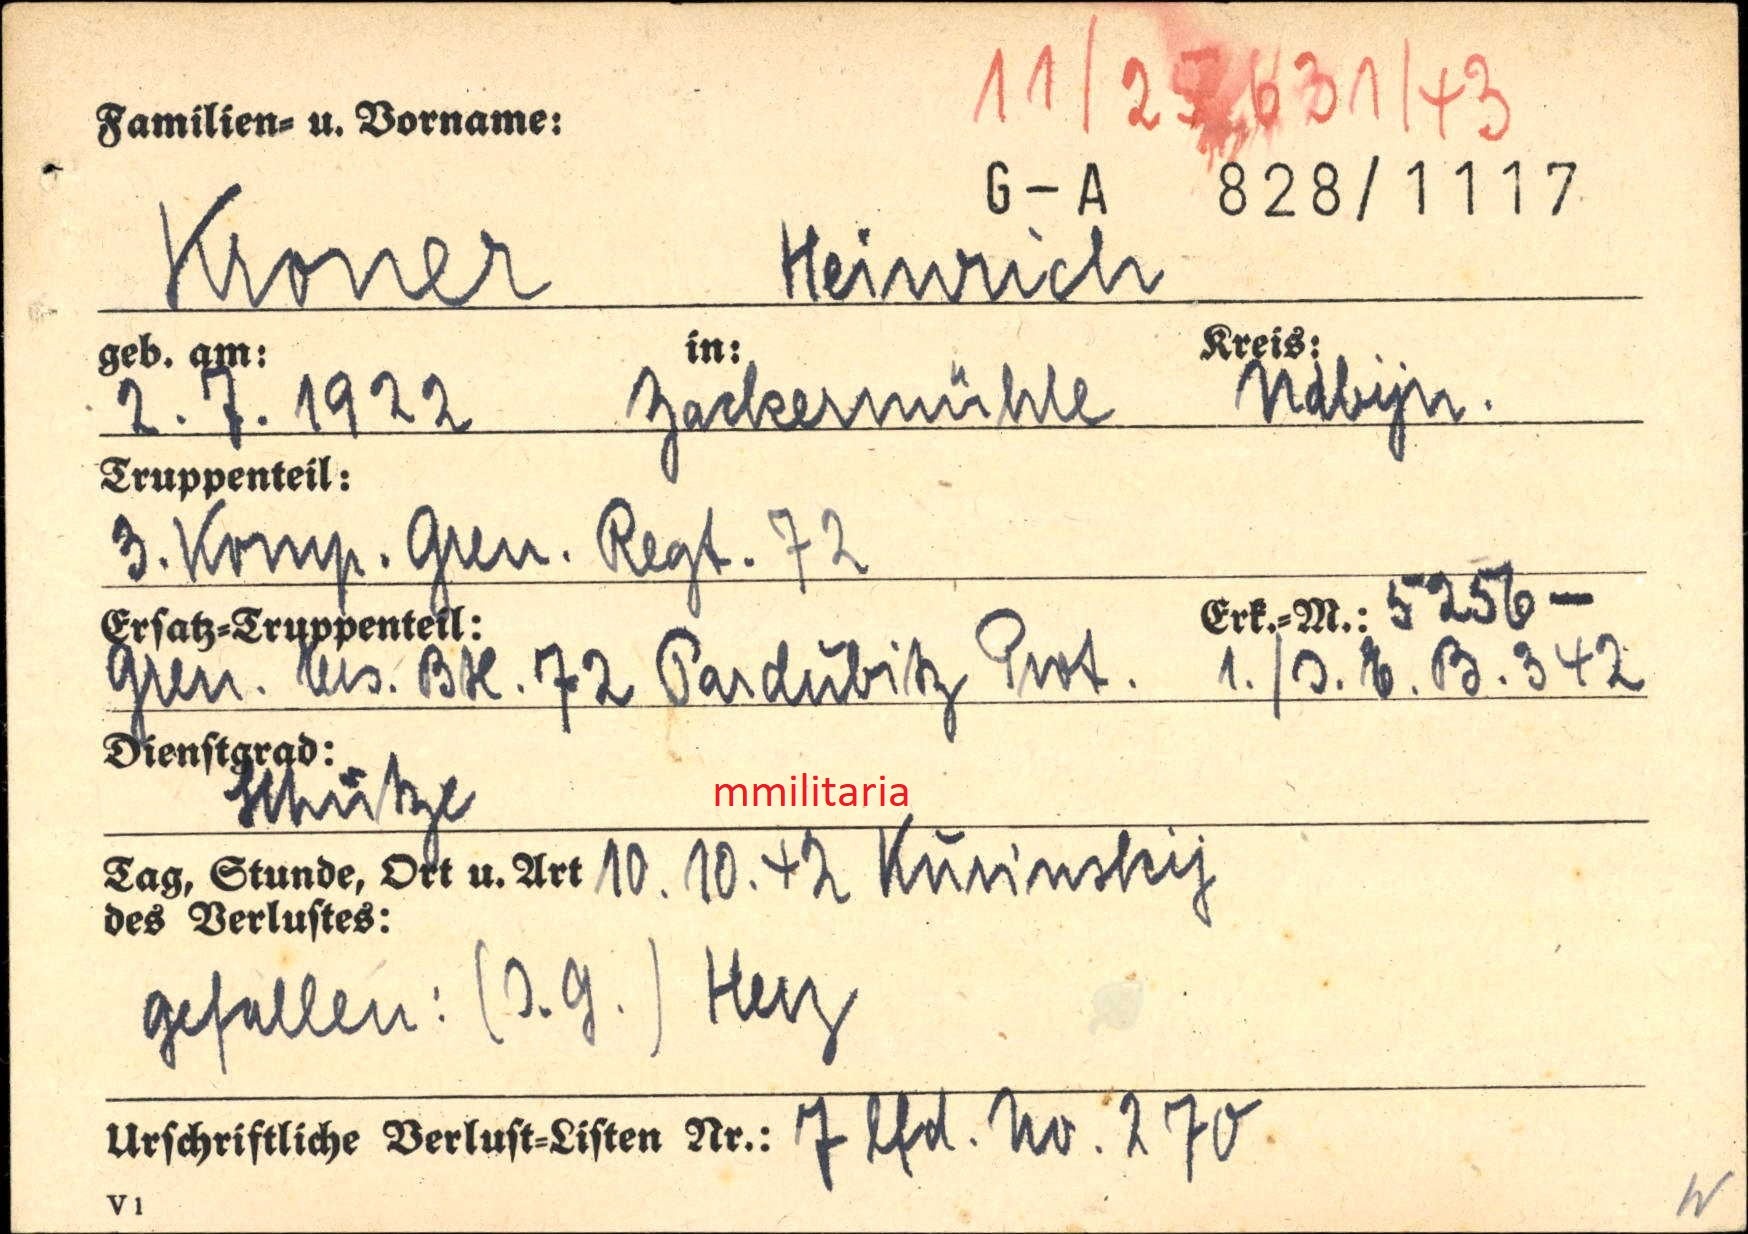 11/25631/43
Familien- u. Vorname:
G-A 828/1117
Kroner Heinrich
geb. am: in: Kreis:
2. 7. 1922 Zackermühle
Truppenteil:
3. Komp. Gren. Regt. 72
Ersatz-Truppenteil: Erk.-M.: 5256 –
Gren. Ers. Btl. 72 Pardubitz Prot. 1./J.E.B. 342
Dienstgrad:
Schütze
mmilitaria
Tag, Stunde, Ort u. Art 10. 10. 42 Kurinskij
des Verlustes:
gefallen: (J.G.) Herz
Urschriftliche Verlust-Listen Nr.: 7 lfd. No. 270
V 1